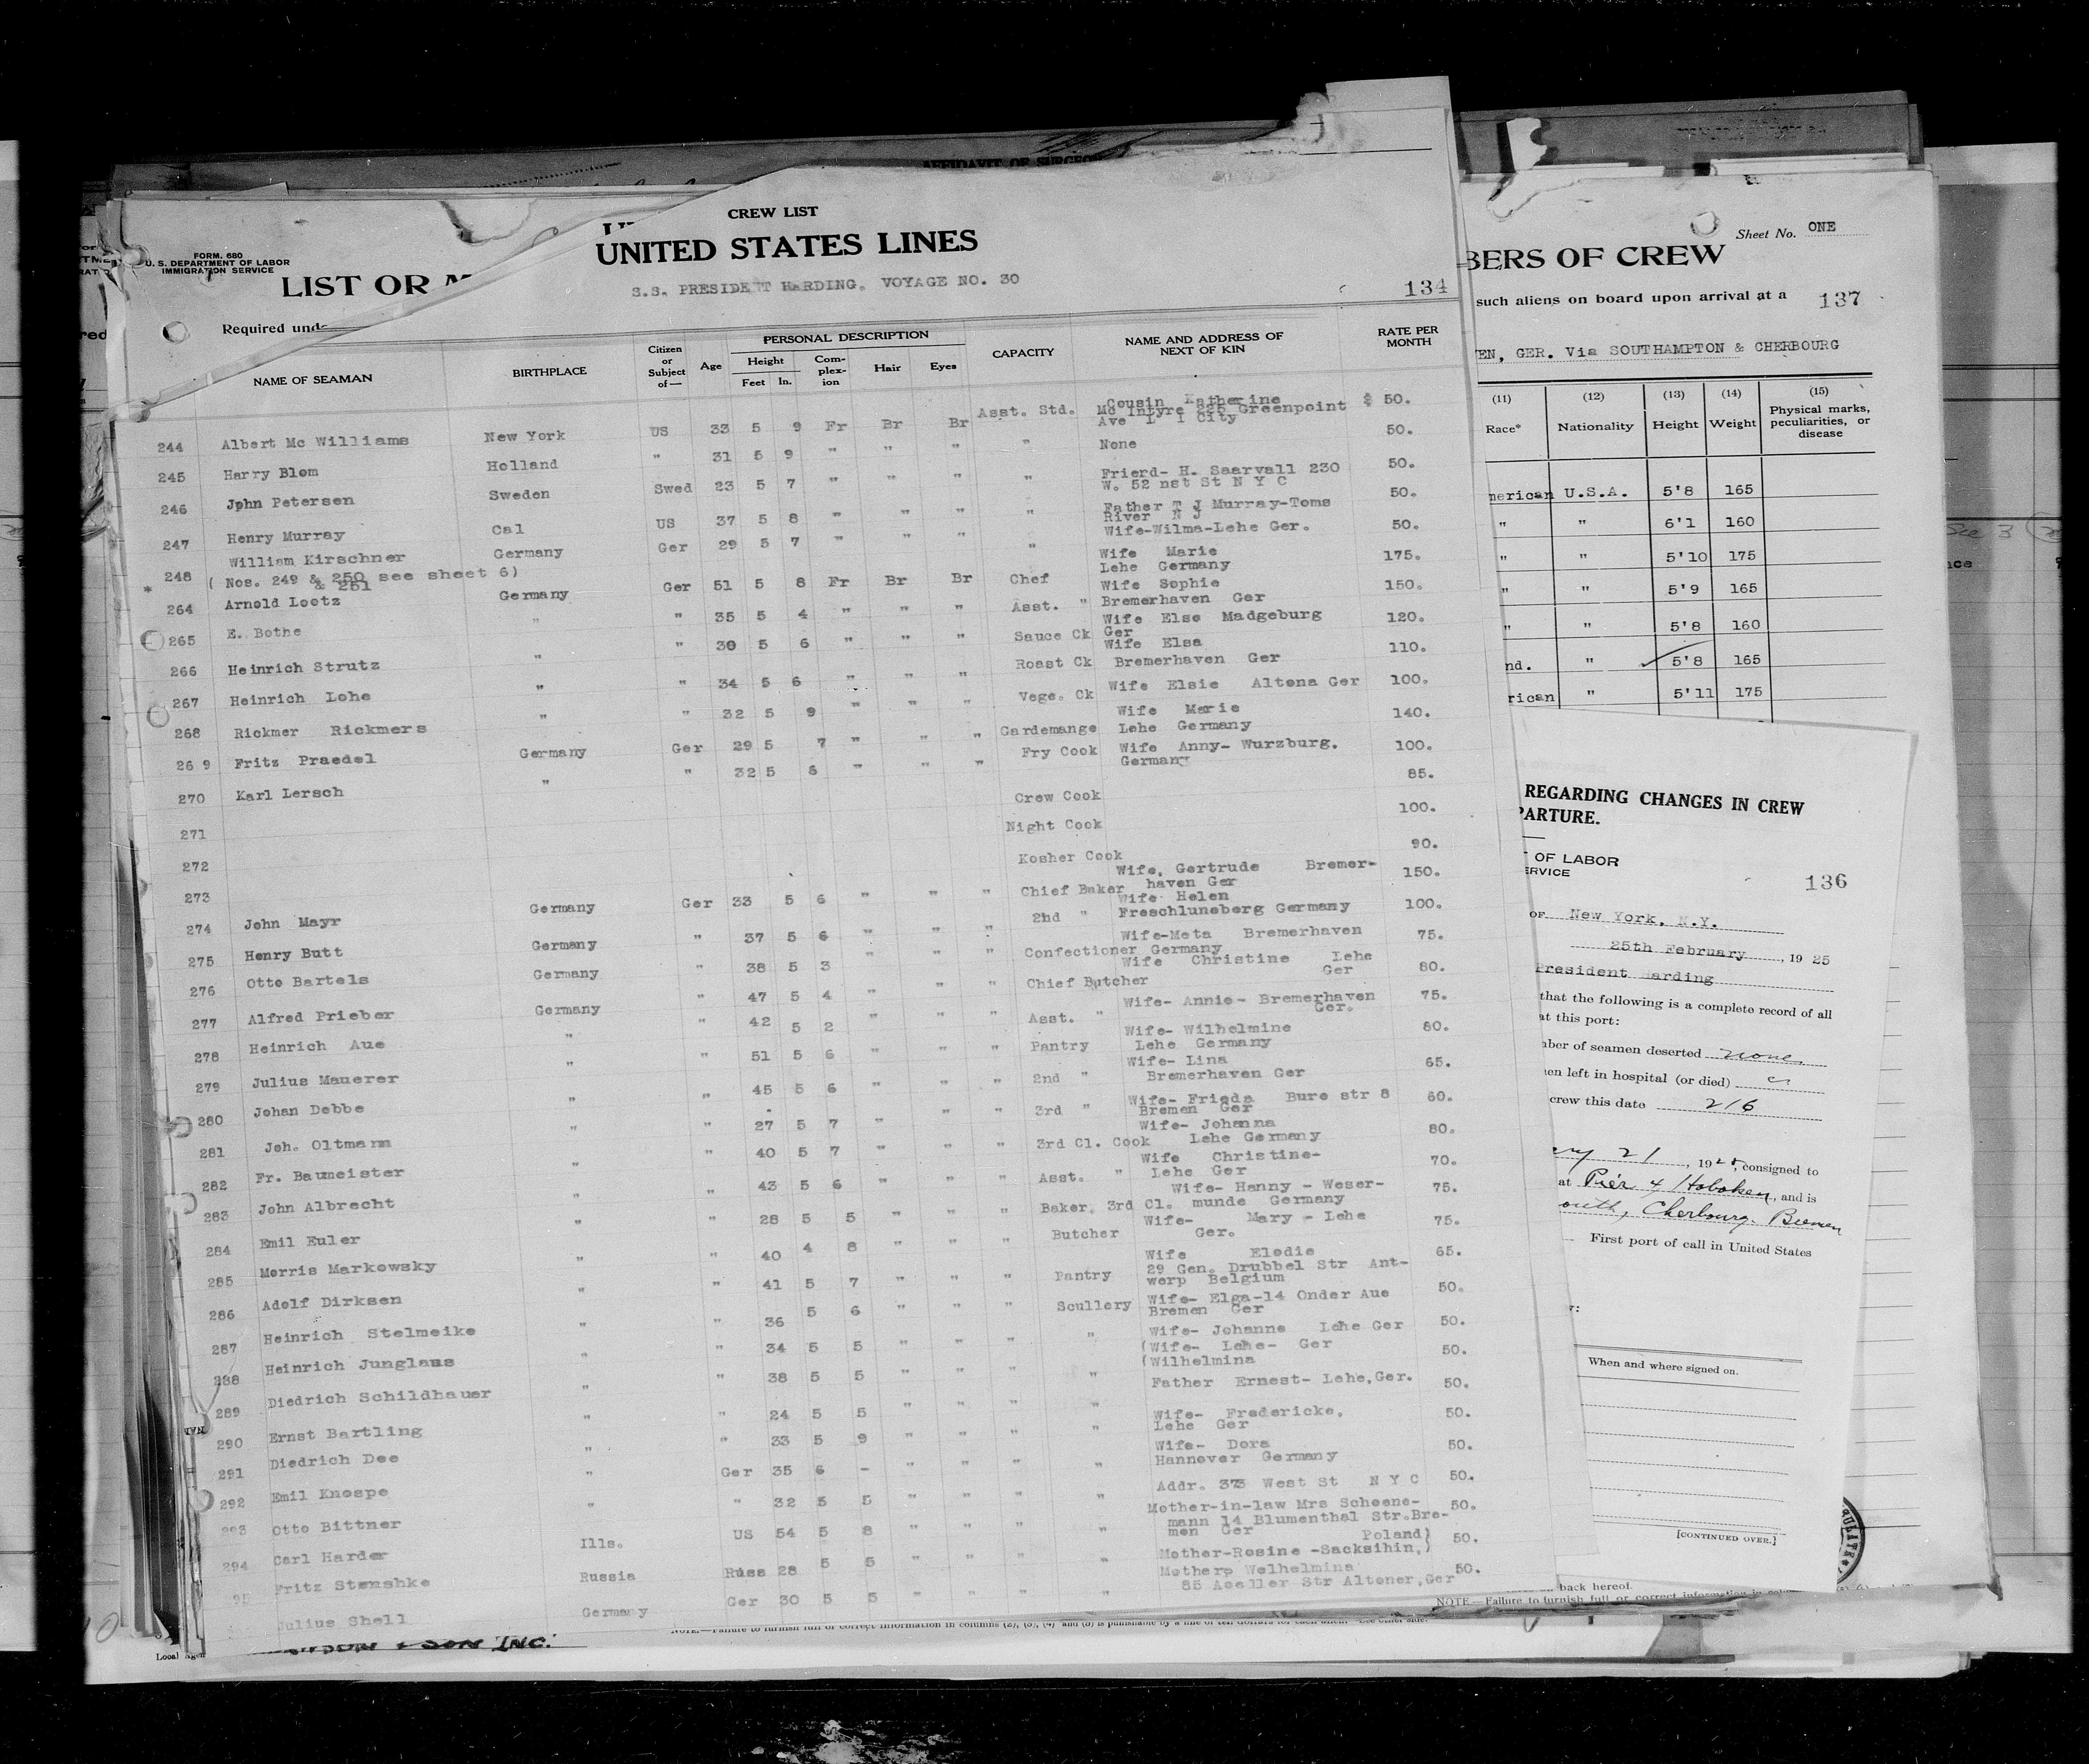 AFFIDAVIT OF SURGEON
CREW LIST
UNITED STATES LINES
S.S. PRESIDENT HARDING. VOYAGE NO. 30
134
FORM. 680
U. S. DEPARTMENT OF LABOR
IMMIGRATION SERVICE
LIST OR M
Required unde
NAME OF SEAMAN BIRTHPLACE Citizen or Subject of— Age PERSONAL DESCRIPTION Height Feet In. Com-plex-ion Hair Eyes CAPACITY NAME AND ADDRESS OF NEXT OF KIN RATE PER MONTH
244 Albert Mc Williams New York US 33 5 9 Fr Br Br Asst. Std. Cousin Katherine Mc Intyre 225 Greenpoint Ave L I City $ 50.
245 Harry Blom Holland " 31 5 9 " " " " None 50.
246 John Petersen Sweden Swed 23 5 7 " " " " Frierd- H. Saarvall 230 W. 52 nst St N Y C 50.
247 Henry Murray Cal US 37 5 8 " " " " Father T J Murray-Toms River N J 50.
248 William Kirschner Germany Ger 29 5 7 " " " " Wife-Wilma-Lehe Ger. 50.
* ( Nos. 249 & 250 see sheet 6)
& 251
264 Arnold Lootz Germany Ger 51 5 8 Fr Br Br Chef Wife Marie Lehe Germany 175.
265 E. Bothe " " 35 5 4 " " " Asst. " Wife Sophie Bremerhaven Ger 150.
266 Heinrich Strutz " " 30 5 6 " " " Sauce Ck Wife Else Madgeburg Ger 120.
267 Heinrich Lohe " " 34 5 6 " " " Roast Ck Wife Elsa Bremerhaven Ger 110.
268 Rickmer Rickmers " " 32 5 9 " " " Vege. Ck Wife Elsie Altona Ger 100.
26 9 Fritz Praedel Germany Ger 29 5 7 " " " Gardemange Wife Marie Lehe Germany 140.
270 Karl Lersch " " 32 5 6 " " " Fry Cook Wife Anny- Wurzburg. Germany 100.
271 Crew Cook 85.
272 Night Cook 100.
273 Kosher Cook 90.
274 John Mayr Germany Ger 33 5 6 " " " Chief Baker Wife, Gertrude Bremer-haven Ger 150.
275 Henry Butt Germany " 37 5 6 " " " 2nd " Wife Helen Freschluneberg Germany 100.
276 Otto Bartels Germany " 38 5 3 " " " Confectioner Wife-Meta Bremerhaven Germany 75.
277 Alfred Prieber Germany " 47 5 4 " " " Chief Butcher Wife Christine Lehe Ger 80.
278 Heinrich Aue " " 42 5 2 " " " Asst. " Wife- Annie- Bremerhaven Ger. 75.
279 Julius Mauerer " " 51 5 6 " " " Pantry Wife- Wilhelmine Lehe Germany 80.
280 Johan Debbe " " 45 5 6 " " " 2nd " Wife- Lina Bremerhaven Ger 65.
281 Joh. Oltmann " " 27 5 7 " " " 3rd " Wife- Frieda Bure str 8 Bremen Ger 60.
282 Fr. Baumeister " " 40 5 7 " " " 3rd Cl. Cook Wife- Johanna Lehe Germany 80.
283 John Albrecht " " 43 5 6 " " " Asst. " Wife Christine- Lehe Ger 70.
284 Emil Euler " " 28 5 5 " " " Baker, 3rd Cl. Wife- Hanny - Weser-munde Germany 75.
285 Morris Markowsky " " 40 4 8 " " " Butcher Wife- Mary - Lehe Ger. 75.
286 Adolf Dirksen " " 41 5 7 " " " Pantry Wife Elodie 29 Gen. Drubbel Str Ant-werp Belgium 65.
287 Heinrich Stelmeike " " 36 5 6 " " " Scullery Wife- Elga-14 Onder Aue Bremen Ger 50.
288 Heinrich Junglaus " " 34 5 5 " " " " Wife- Johanne Lehe Ger 50.
289 Diedrich Schildhauer " " 38 5 5 " " " " (Wife- Lehe- Ger (Wilhelmina 50.
290 Ernst Bartling " " 24 5 5 " " " " Father Ernest- Lehe,Ger. 50.
291 Diedrich Dee " " 33 5 9 " " " " Wife- Fredericke, Lehe Ger 50.
292 Emil Knospe " Ger 35 6 - " " " " Wife- Dora Hannover Germany 50.
293 Otto Bittner " " 32 5 5 " " " " Addr. 373 West St N Y C 50.
294 Carl Harder Ills. US 54 5 8 " " " " Mother-in-law Mrs Scheene-mann 14 Blumenthal Str.Bre-men Ger 50.
95 Fritz Stenshke Russia Russ 28 5 5 " " " " Mother-Rosine -Sacksihin,) Poland) 50.
Julius Shell Germany Ger 30 5 5 " " " " Mother Welhelmina 85 Aoeller Str Altoner,Ger 50.
SON INC.
Local Agen
NOTE.—Failure to furnish full or correct information in columns (2), (3), (4) and (5) is punishable by a fine of ten dollars for each alien. See other side.
Sheet No. ONE
BERS OF CREW
such aliens on board upon arrival at a 137
EN, GER. Via SOUTHAMPTON & CHERBOURG
(11) Race* (12) Nationality (13) Height (14) Weight (15) Physical marks, peculiarities, or disease
merican U.S.A. 5'8 165
" " 6'1 160
" " 5'10 175
" " 5'9 165
" " 5'8 160
nd. " 5'8 165
rican " 5'11 175
See 3
REGARDING CHANGES IN CREW
PARTURE.
T OF LABOR
ERVICE
136
OF New York, N.Y.
25th February, 1925
President Harding
that the following is a complete record of all
at this port:
mber of seamen deserted none
en left in hospital (or died) "
crew this date 216
ry 21, 1925, consigned to
at Pier 4 Hoboken, and is
outh, Cherbourg. Bremen
First port of call in United States
When and where signed on.
[CONTINUED OVER.]
back hereof.
NOTE—Failure to furnish full or correct information in